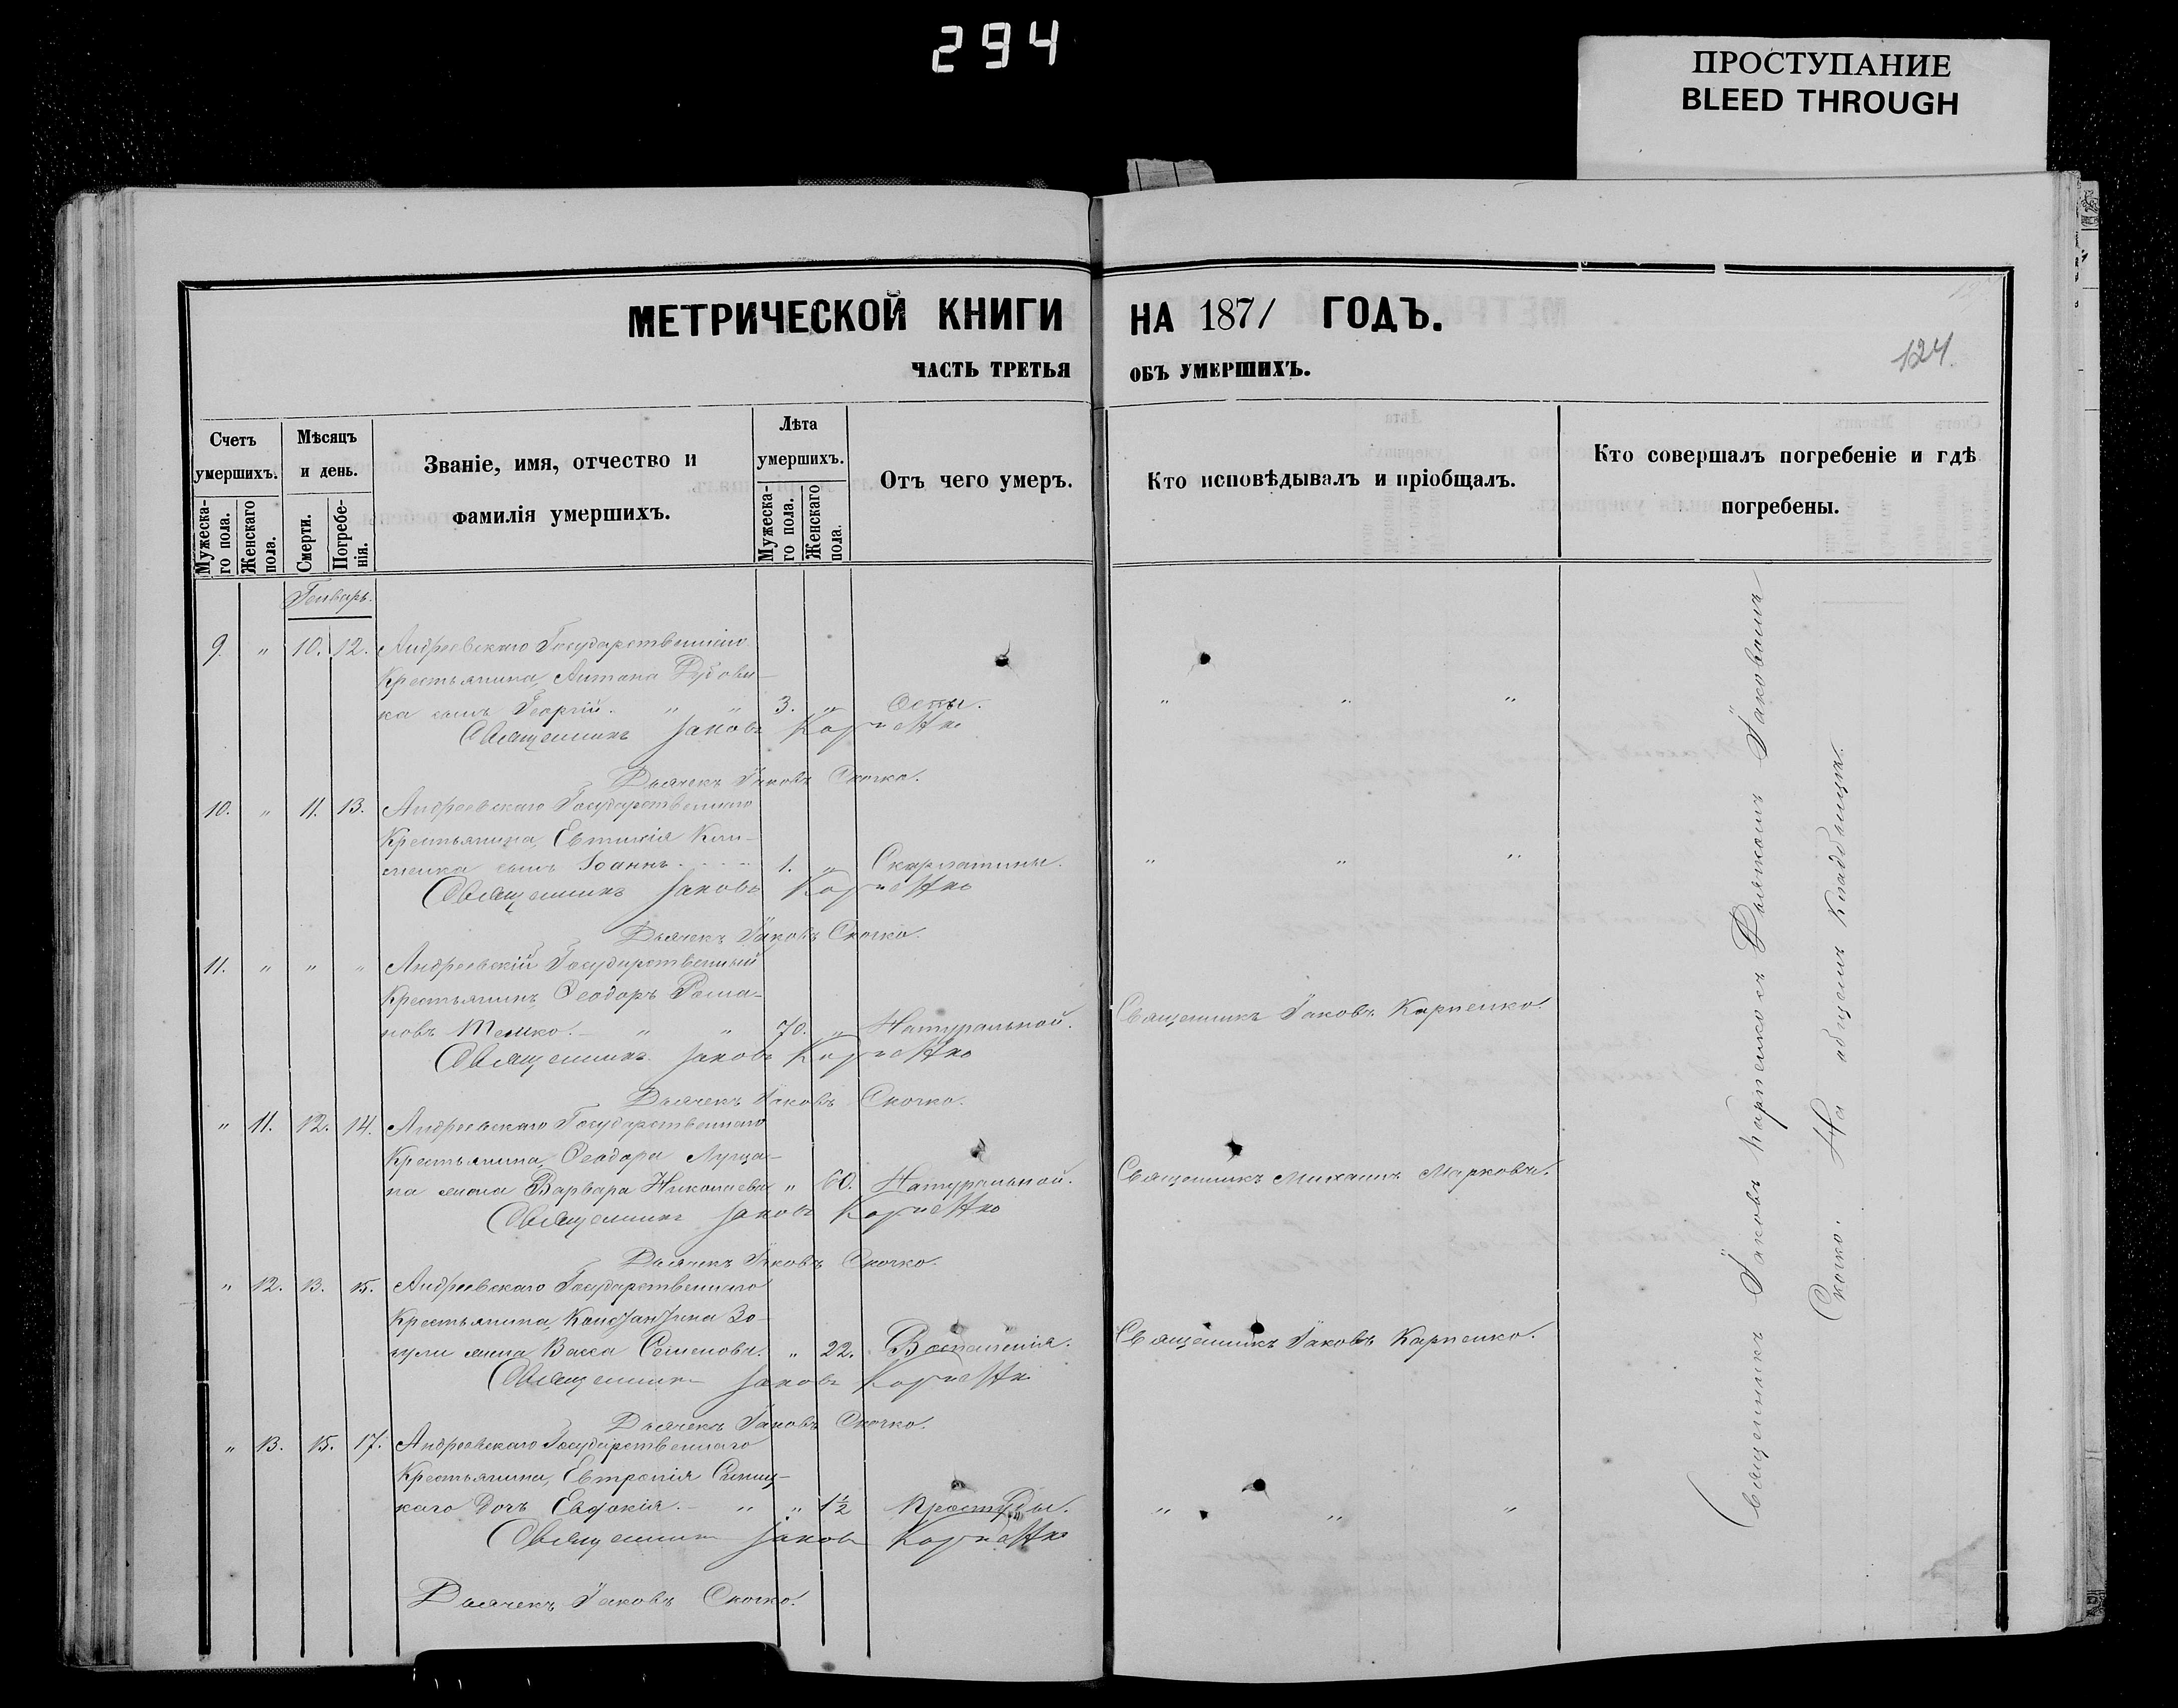 294
ПРОСТУПАНИЕ
BLEED THROUGH
МЕТРИЧЕСКОЙ КНИГИ НА 1871 ГОДЪ.
124.
ЧАСТЬ ТРЕТЬЯ ОБЪ УМЕРШИХЪ.
Счетъ умершихъ.
Мужеска-
го пола.
Женскаго
пола.
Мѣсяцъ и день.
Смерти.
Погребе-
нія.
Званіе, имя, отчество и
фамилія умершихъ.
Лѣта умершихъ.
Мужеска-
го пола.
Женскаго
пола.
Отъ чего умеръ.
Кто исповѣдывалъ и пріобщалъ.
Кто совершалъ погребеніе и гдѣ
погребены.
Генварь.
9. " 10. 12. Андреевскаго Государственнаго
Крестьянина, Антона
ка сынъ Георгій. " " 3. " Оспы. " " "
Священникъ Іаковъ Карпенко
Дьячекъ Іаковъ Скочко.
10. " 11. 13. Андреевскаго Государственнаго
Крестьянина, Евтихія Кли-
менка сынъ Іоаннъ 1. " Скарлатины. " " "
Священникъ Іаковъ Карпенко
Дьячекъ Іаковъ Скочко.
11. " " " Андреевскій Государственный
Крестьянинъ, Ѳеодоръ Рома-
новъ Темко. " " 70. " Натуральной. Священникъ Іаковъ Карпенко.
Священникъ Іаковъ Карпенко
Дьячекъ Іаковъ Скочко.
" 11. 12. 14. Андреевскаго Государственнаго
Крестьянина, Ѳеодора
на жена Варвара Николаева " 60. Натуральной. Священникъ Михаилъ Марковъ.
Священникъ Іаковъ Карпенко
Дьячекъ Іаковъ Скочко.
" 12. 13. 15. Андреевскаго Государственнаго
Крестьянина, Константина Зо-
зули жена Васса Семенова. " 22. Воспаленія. Священникъ Іаковъ Карпенко.
Священникъ Іаковъ Карпенко
Дьячекъ Іаковъ Скочко.
" 13. 15. 17. Андреевскаго Государственнаго
Крестьянина, Евтропія Синиц-
каго дочь Евдокія. " " 1½ Простуды. " " "
Священникъ Іаковъ Карпенко
Дьячекъ Іаковъ Скочко.
Священникъ Іаковъ Карпенко съ Дьячкомъ Іаковомъ
Скочко. На общемъ кладбищѣ.